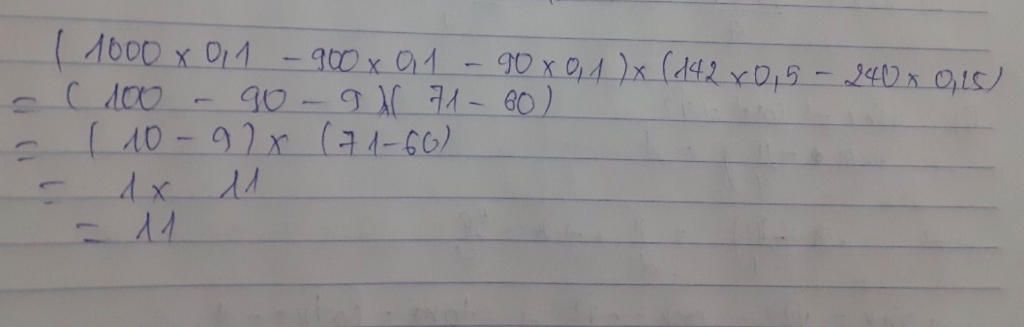 ( 1000 x 0,1 - 900 x 0,1 - 90 x 0,1 ) x (142 x 0,5 - 240 x 0,25)
= ( 100 - 90 - 9 )x( 71 - 60)
= ( 10 - 9 ) x (71-60)
= 1 x 11
= 11